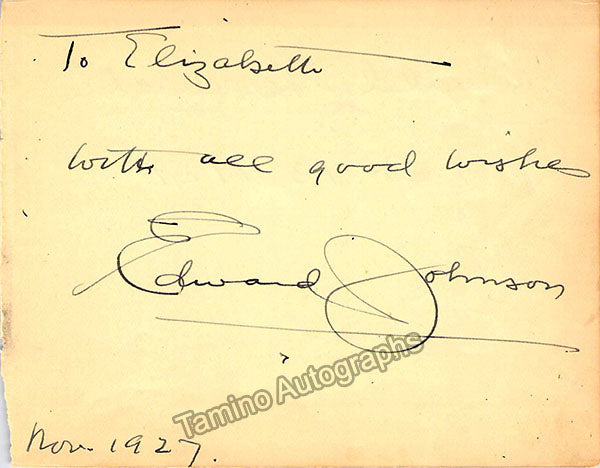 To Elizabeth
with all good wishes
Edward Johnson
Tamino Autographs
Nov. 1927.